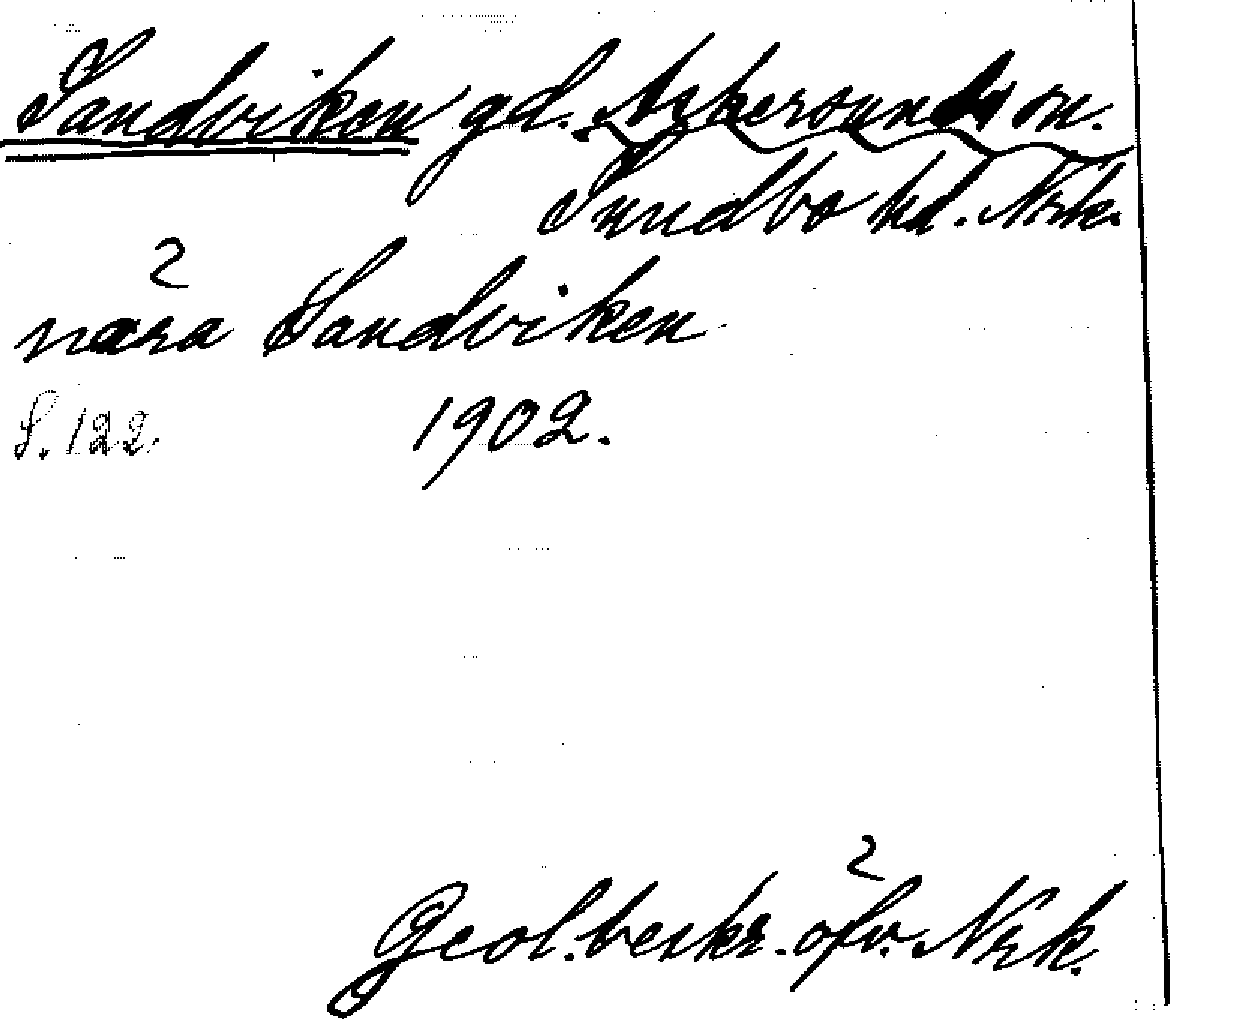 Sandviken gd. Askersunds sn.
Sundbo hd. Nrk.
nära Sandviken
S. 122. 1902.
Geol. beskr. öfv. Nrk.